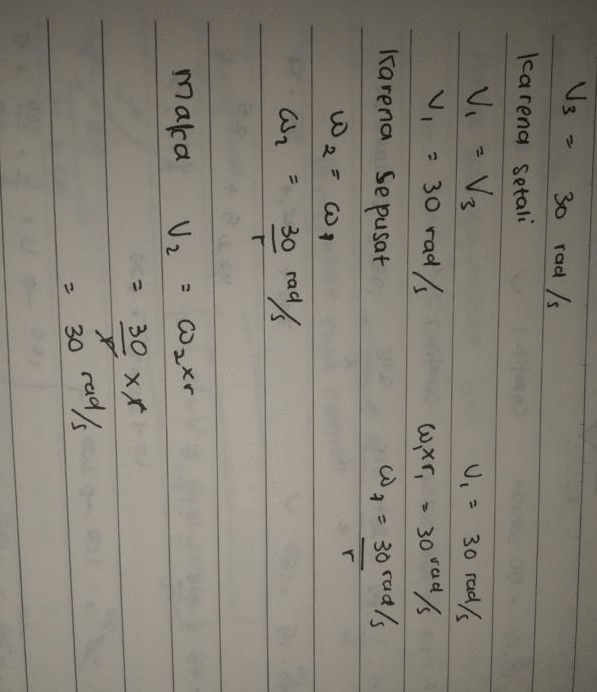 V₃ = 30 rad/s
Karena setali
V₁ = V₃ V₁ = 30 rad/s
V₁ = 30 rad/s ω₁xr₁ = 30 rad/s
Karena sepusat ω₁ = 30/r rad/s
ω₂ = ω₁
ω₂ = 30/r rad/s
Maka V₂ = ω₂xr
= 30/r x r
= 30 rad/s